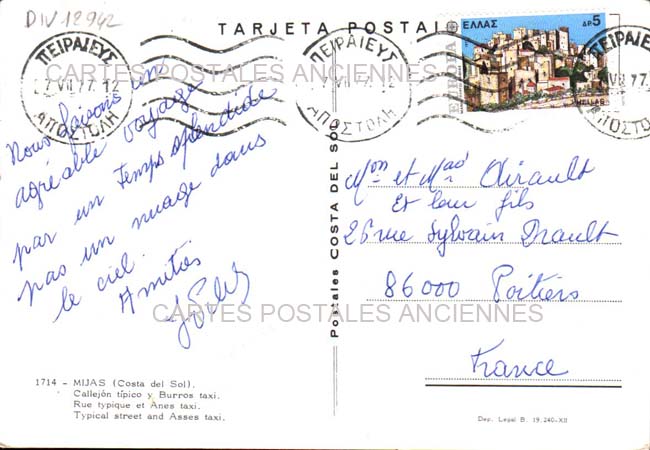 DIV 18942
TARJETA POSTAL
ΕΛΛΑΣ ΔΡ 5
EUROPA
HELLAS
ΠΕΙΡΑΙΕΥΣ
27 VII 77. 12
ΑΠΟΣΤΟΛΗ
ΠΕΙΡΑΙΕΥΣ
VII 77. 12
ΑΠΟΣΤΟΛΗ
ΠΕΙΡΑΙΕΥΣ
VII 77
ΑΠΟΣΤΟΛΗ
CARTES POSTALES ANCIENNES
Nous faisons un
agréable voyage
par un temps splendide
pas un nuage dans
le ciel.
Amitiés
Postales COSTA DEL SOL
Mon et Mad Airault
Et leur fils
26 rue Sylvain Drault
86000 Poitiers
France
CARTES POSTALES ANCIENNES
1714 - MIJAS (Costa del Sol).
Callejón típico y Burros taxi.
Rue typique et Anes taxi.
Typical street and Asses taxi.
Dep. Legal B. 19.240-XII